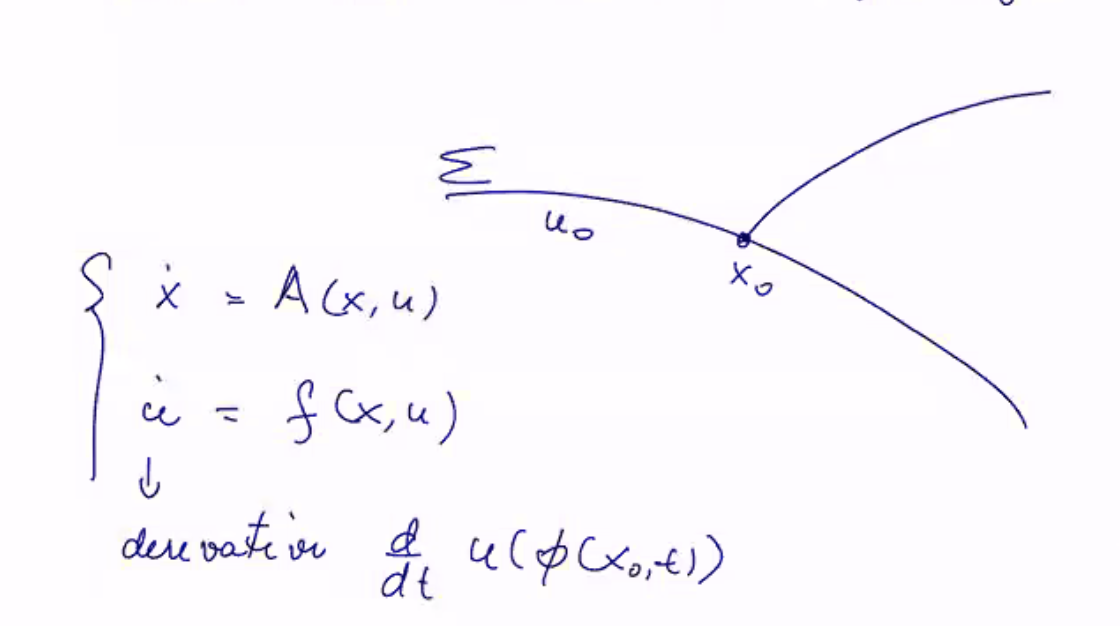 Σ
u₀
x₀
{ ẋ = A(x, u)
u̇ = f(x, u)
↓
derivative d/dt u(ϕ(x₀,t))